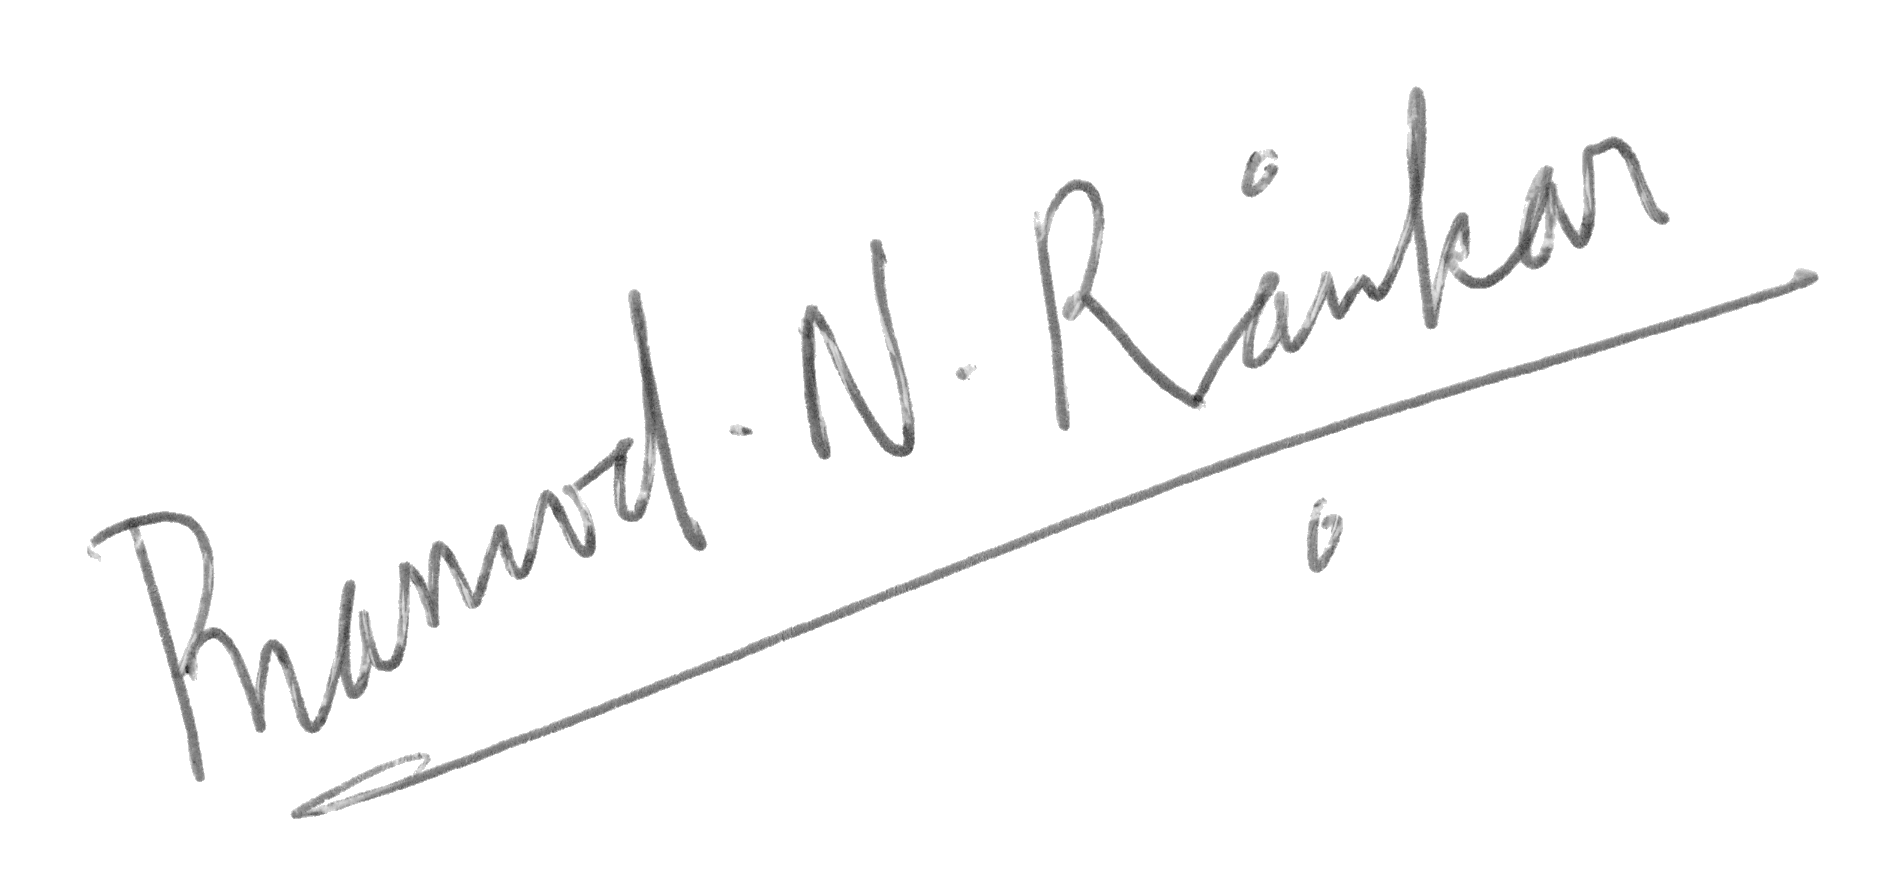 Pramod. N. Rainkar